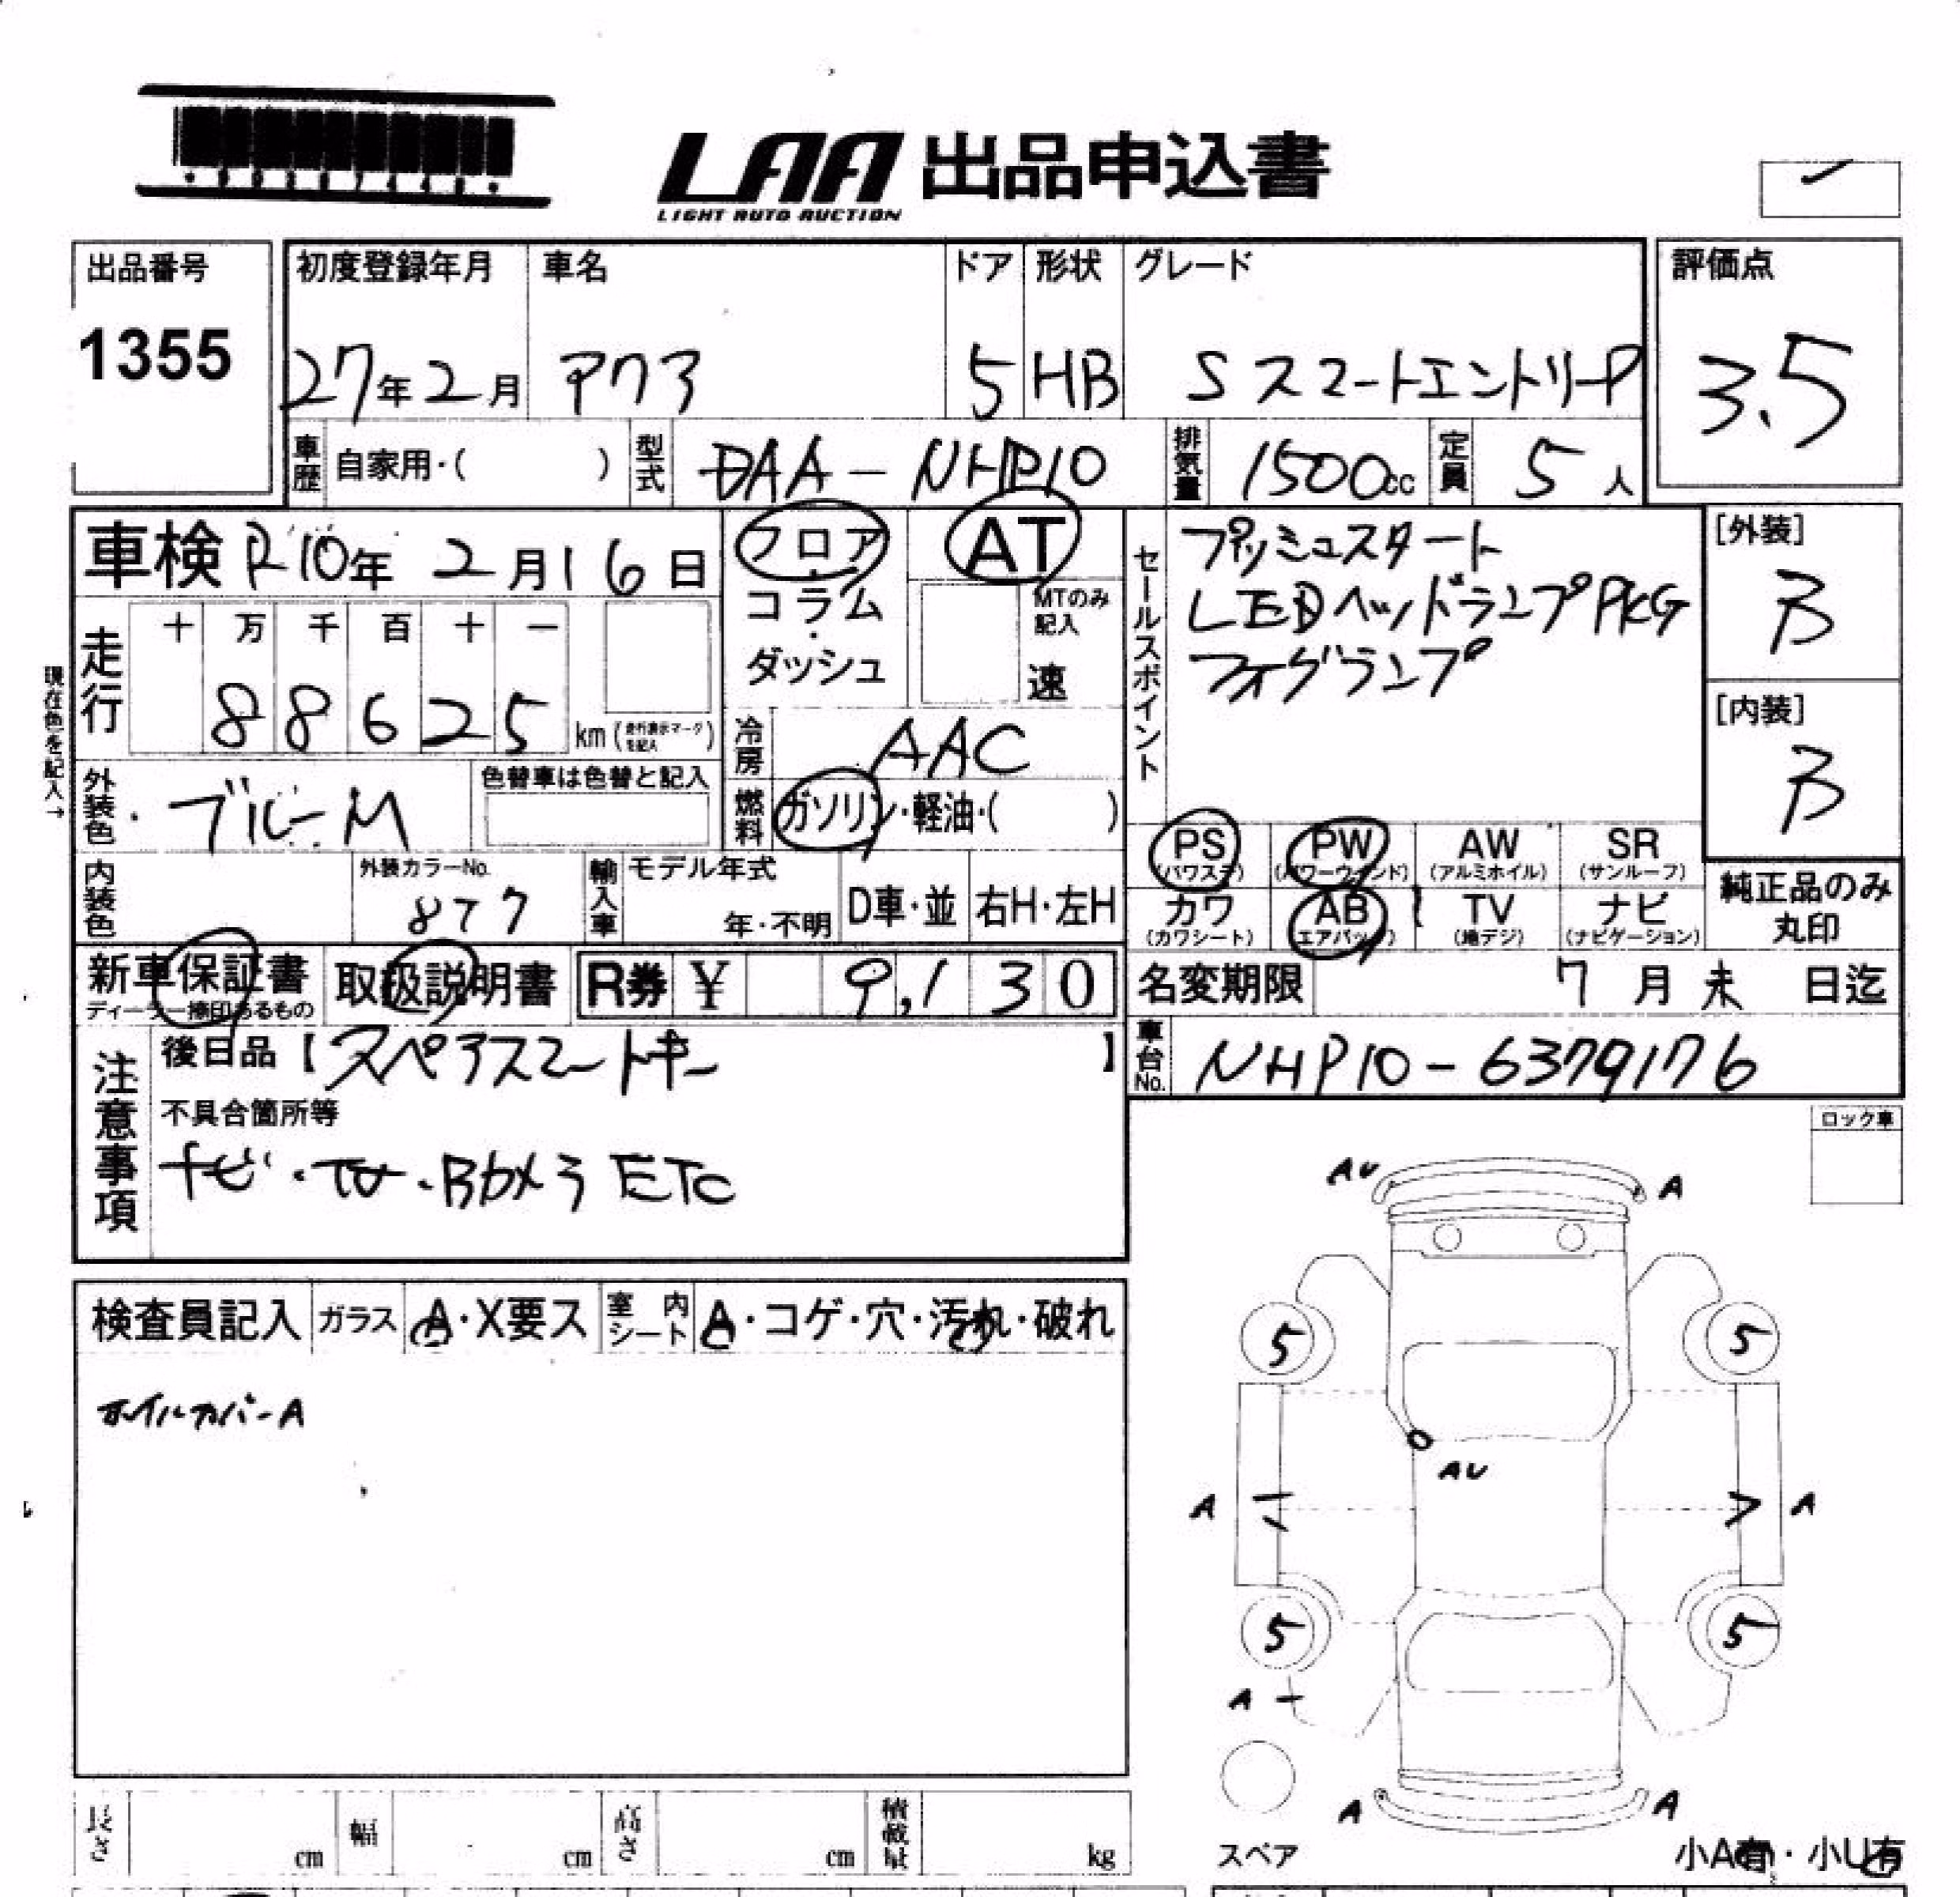 LAA 出品申込書
LIGHT AUTO AUCTION
出品番号
1355
初度登録年月
27年2月
車名
アクア
ドア
5
形状
HB
グレード
Sスマートエントリー P
評価点
3.5
車歴 自家用・( )
型式 DAA-NHP10
排気量 1500cc
定員 5人
車検 R10年 2月16日
フロア・
コラム・
ダッシュ
AT
MTのみ
記入
速
セールスポイント
プッシュスタート
LEDヘッドランプPKG
フォグランプ
[外装]
B
[内装]
B
現在色を記入→
走行
十 万 千 百 十 一
8 8 6 2 5
km(走行表示マークを記入)
冷房 AAC
外装色 ・ブルーM
色替車は色替と記入
燃料 ガソリン・軽油・( )
PS (パワステ)
PW (パワーウィンド)
AW (アルミホイル)
SR (サンルーフ)
カワ (カワシート)
AB (エアバック)
TV (地デジ)
ナビ (ナビゲーション)
純正品のみ
丸印
内装色
外装カラーNo.
877
輸入車
モデル年式
年・不明
D車・並
右H・左H
新車保証書
ディーラー捺印あるもの
取扱説明書
R券 ¥ 9,130
名変期限 7月末 日迄
車台No. NHP10-6379176
注意事項
後日品【スペアスマートキー】
不具合箇所等
ナビ・TV・Bカメラ ETC
ロック車
AU A
検査員記入 ガラス A・X要ス 室内シート A・コゲ・穴・汚れ・破れ
ホイルカバーA
5 5
AU
A A
5 5
A
A A
スペア
小A有・小U有
長さ cm 幅 cm 高さ cm 積載量 kg